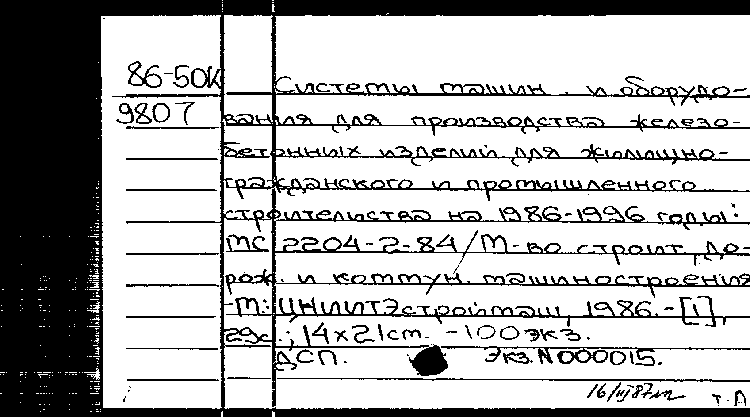 86-50К
9807
Системы машин и оборудо-
вания для производства железо-
бетонных изделий для жилищно-
гражданского и промышленного
строительства на 1986-1996 годы:
МС 2204-2-84/М-во строит., до-
рож. и коммун. машиностроения
-М.: ЦНИИТЭстроймаш, 1986.-[1],
29с.; 14х21cm. -100экз.
ДСП. Экз.N000015.